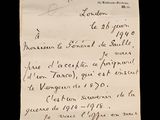 London
le 26 juin
1940
à
Monsieur le Général de Gaulle,
Je vous
prie d'accepter ce poignard
(d'un Tarco), qui est
le Vengeur de 1870.
C'est un souvenir de la
guerre de 1914-1918.
Je vous l'offre en